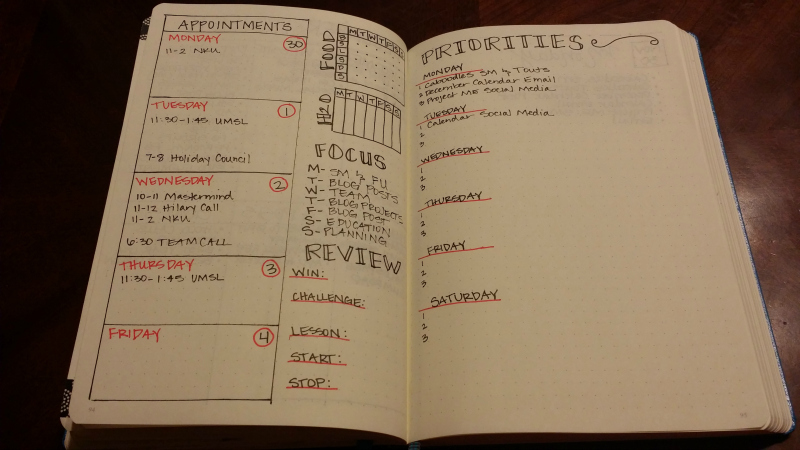 APPOINTMENTS
MONDAY 30
11-2 NKU
TUESDAY 1
11:30-1:45 UMSL
7-8 Holiday Council
WEDNESDAY 2
10-11 Mastermind
11-12 Hilary Call
11-2 NKU
6:30 TEAM CALL
THURSDAY 3
11:30-1:45 UMSL
FRIDAY 4
FOOD
M T W T F S S
B
S
L
S
D
S
H2O
M T W T F S S
FOCUS
M- SM & FU
T- BLOG POSTS
W- TEAM
T- BLOG PROJECTS
F- BLOG POST
S- EDUCATION
S- PLANNING
REVIEW
WIN:
CHALLENGE:
LESSON:
START:
STOP:
PRIORITIES
MONDAY
1 Caboodles SM & Touts
2 December Calendar Email
3 Project ME Social Media
TUESDAY
1 Calendar Social Media
2
3
WEDNESDAY
1
2
3
THURSDAY
1
2
3
FRIDAY
1
2
3
SATURDAY
1
2
3